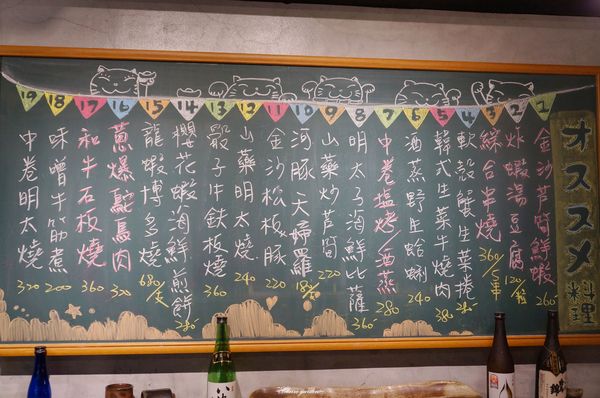 オススメ料理
1 金沙芦筍鮮蝦 260
2 炸蝦湯豆腐 120
3 綜合串燒 360/5串
4 軟殼蟹生菜捲
5 韓式生菜牛燒肉 380
6 酒蒸野生蛤蜊 240
7 中卷塩烤/酒蒸 280
8 明太子海鮮比薩 360
9 山藥炒芦筍 220
10 河豚天婦羅 180
11 金沙松板豚 220
12 山藥明太燒 240
13 骰子牛鉄板燒 360
14 櫻花蝦海鮮煎餅 280
15 龍蝦博多燒 680
16 蔥爆鴕鳥肉 320
17 和牛石板燒 360
18 味噌牛筋煮 200
19 中卷明太燒 320